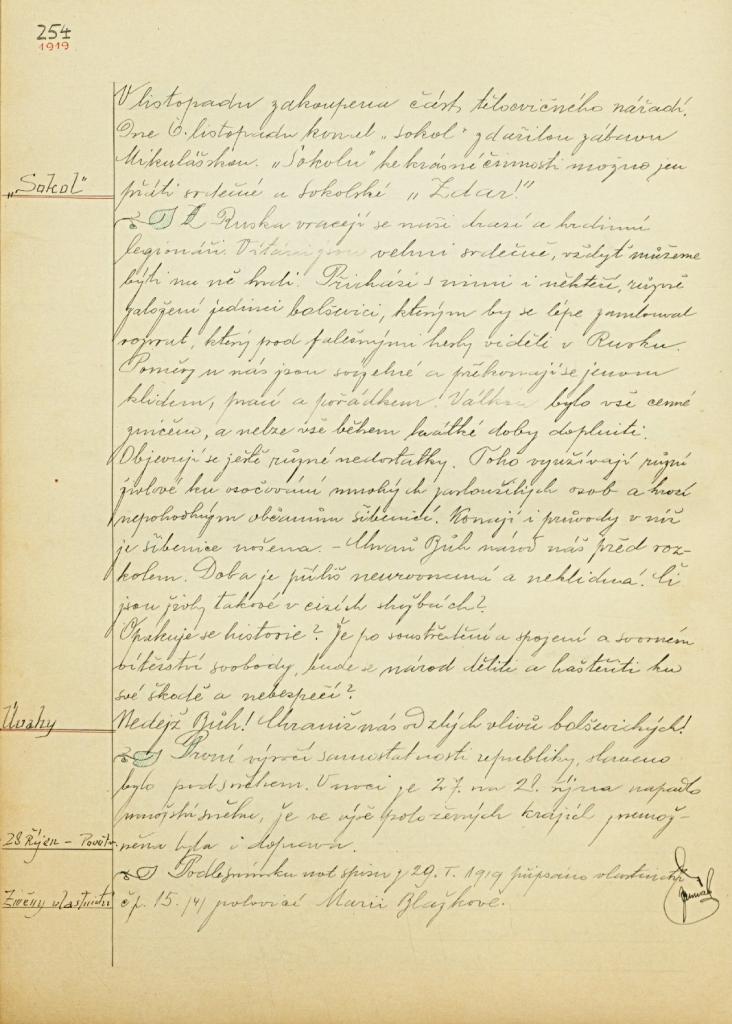 254
1919
V listopadu zakoupena část tělocvičného nářadí.
Dne 6. listopadu konal „Sokol" zdařilou zábavu
Mikulášskou. „Sokolu" ke krásné činnosti možno jen
„Sokol"
přáti srdečné a sokolské „Zdar!"
Z Ruska vracejí se naši drazí a hrdinní
legionáři. Vítáni jsou velmi srdečně, vždyť můžeme
býti na ně hrdi. Přichází s nimi i někteří, různě
založení jedinci bolševici, kterým by se lépe zamlouval
rozvrat, který pod falešnými hesly viděli v Rusku.
Poměry u nás jsou svízelné a překonají se jenom
klidem, prací a pořádkem. Válkou bylo vše cenné
zničeno, a nelze vše během krátké doby doplniti.
Objevují se ještě různé nedostatky. Toho využívají různí
živlové ku osočování mnohých zasloužilých osob a hrozí
nepohodlným občanům šibenicí. Konají i průvody v níž
je šibenice nošena. – Chraň Bůh národ náš před roz-
kolem. Doba je příliš neurovnaná a neklidná. Či
jsou živly takové v cizích službách?
Opakuje se historie? Je po soustředění a spojení a svorném
vítězství svobody, bude se národ děliti a haštěřiti ku
své škodě a nebezpečí?
Úvahy
Nedejž Bůh! Chraniž nás od zlých vlivů bolševických!
První výročí samostatnosti republiky, slaveno
bylo pod sněhem. V noci je 27. na 28. října napadlo
množství sněhu, že ve výše položených krajích znemož-
28 Říjen –
něna byla i doprava.
Podle výměru not. spisu z 29. I. 1919 připsáno vlastnictví
Změny vlastnictví
čp. 15. polovicí Marii Blažkové.